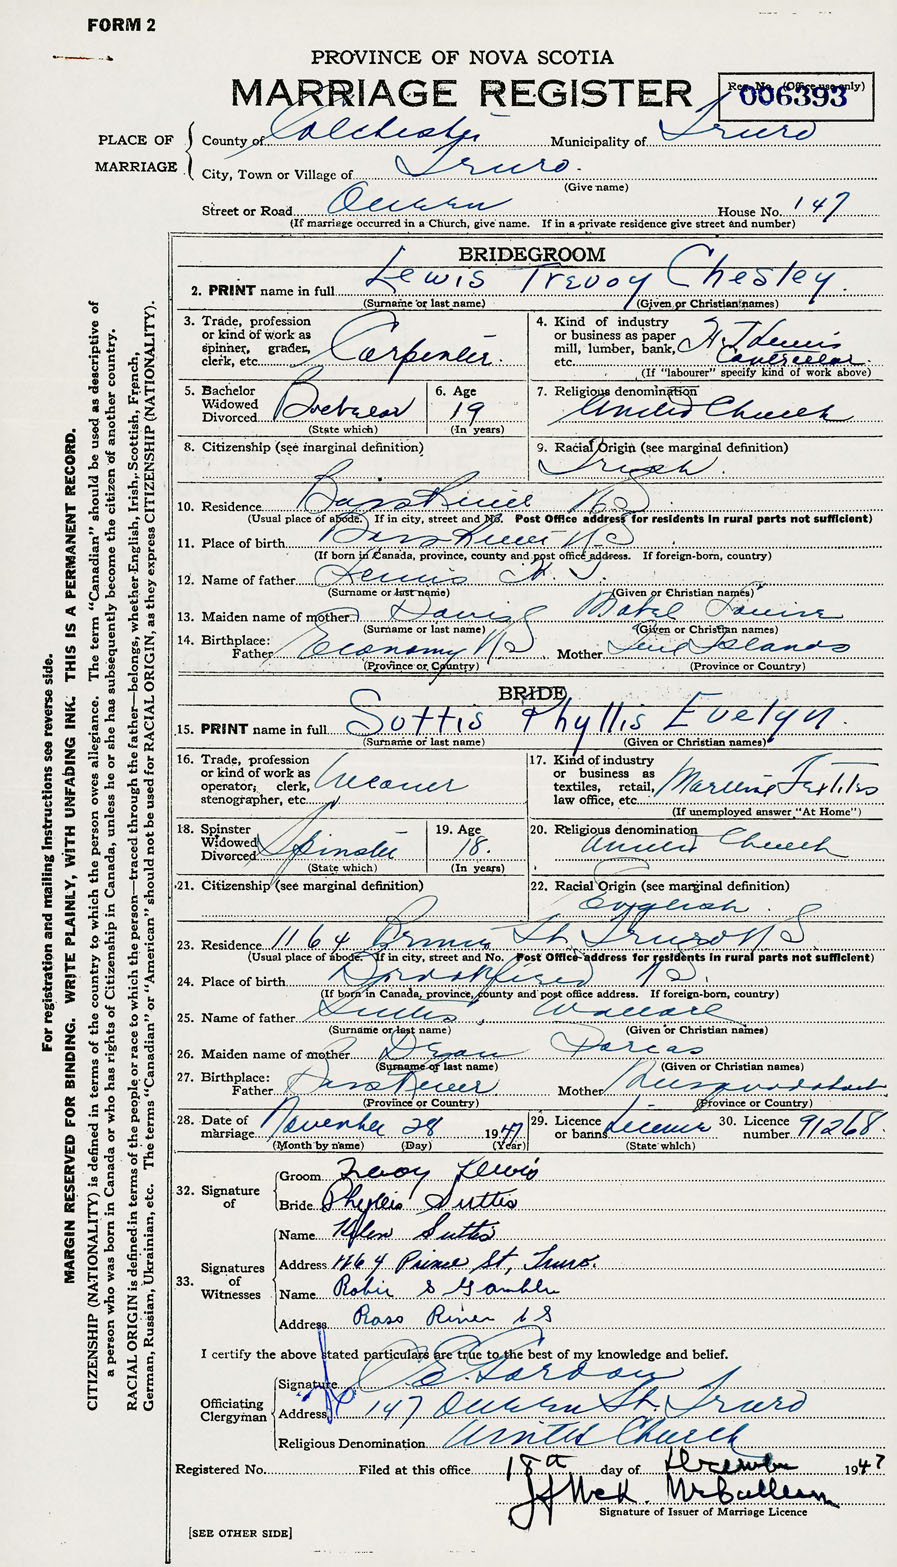 FORM 2
PROVINCE OF NOVA SCOTIA
MARRIAGE REGISTER
Reg. No. (Office use only)
006393
PLACE OF MARRIAGE
County of Colchester Municipality of Truro
City, Town or Village of Truro.
(Give name)
Street or Road Queen House No. 147
(If marriage occurred in a Church, give name. If in a private residence give street and number)
BRIDEGROOM
2. PRINT name in full Lewis Trevoy Chesley.
(Surname or last name) (Given or Christian names)
3. Trade, profession or kind of work as spinner, grader, clerk, etc. Carpenter.
4. Kind of industry or business as paper mill, lumber, bank, etc.
(If "labourer" specify kind of work above)
5. Bachelor Widowed Divorced Bachelor
(State which)
6. Age 19
(In years)
7. Religious denomination United Church
8. Citizenship (see marginal definition)
9. Racial Origin (see marginal definition)
Irish.
10. Residence Bass River N S
(Usual place of abode. If in city, street and No. Post Office address for residents in rural parts not sufficient)
11. Place of birth Bass River N S
(If born in Canada, province, county and post office address. If foreign-born, country)
12. Name of father Lewis
(Surname or last name) (Given or Christian names)
13. Maiden name of mother Davis Mabel Louise
(Surname or last name) (Given or Christian names)
14. Birthplace: Father Economy N S Mother Five Islands
(Province or Country) (Province or Country)
BRIDE
15. PRINT name in full Suttis Phyllis Evelyn.
(Surname or last name) (Given or Christian names)
16. Trade, profession or kind of work as operator, clerk, stenographer, etc. Weaver
17. Kind of industry or business as textiles, retail, law office, etc. Textiles
(If unemployed answer "At Home")
18. Spinster Widowed Divorced Spinster
(State which)
19. Age 18.
(In years)
20. Religious denomination
United Church
21. Citizenship (see marginal definition)
22. Racial Origin (see marginal definition)
English.
23. Residence 1164 Prince St. Truro N S
(Usual place of abode. If in city, street and No. Post Office address for residents in rural parts not sufficient)
24. Place of birth Brookfield N S.
(If born in Canada, province, county and post office address. If foreign-born, country)
25. Name of father Suttis, Wallace
(Surname or last name) (Given or Christian names)
26. Maiden name of mother Dorcas
(Surname or last name) (Given or Christian names)
27. Birthplace: Father Bass River Mother Musquodoboit
(Province or Country) (Province or Country)
28. Date of marriage November 28 1947
(Month by name) (Day) (Year)
29. Licence or banns License
(State which)
30. Licence number 91268.
32. Signature of
Groom Trevoy Lewis
Bride Phyllis Suttis
33. Signatures of Witnesses
Name Suttis
Address 1164 Prince St, Truro.
Name
Address Bass River N S
I certify the above stated particulars are true to the best of my knowledge and belief.
Officiating Clergyman
Signature Gordon
Address 147 Queen St. Truro
Religious Denomination United Church
Registered No. Filed at this office 18th day of December 1947
Signature of Issuer of Marriage Licence
[SEE OTHER SIDE]
For registration and mailing instructions see reverse side.
MARGIN RESERVED FOR BINDING. WRITE PLAINLY, WITH UNFADING INK. THIS IS A PERMANENT RECORD.
CITIZENSHIP (NATIONALITY) is defined in terms of the country to which the person owes allegiance. The term "Canadian" should be used as descriptive of
a person who was born in Canada or who has rights of Citizenship in Canada, unless he or she has subsequently become the citizen of another country.
RACIAL ORIGIN is defined in terms of the people or race to which the person—traced through the father—belongs, whether English, Irish, Scottish, French,
German, Russian, Ukrainian, etc. The terms "Canadian" or "American" should not be used for RACIAL ORIGIN, as they express CITIZENSHIP (NATIONALITY).